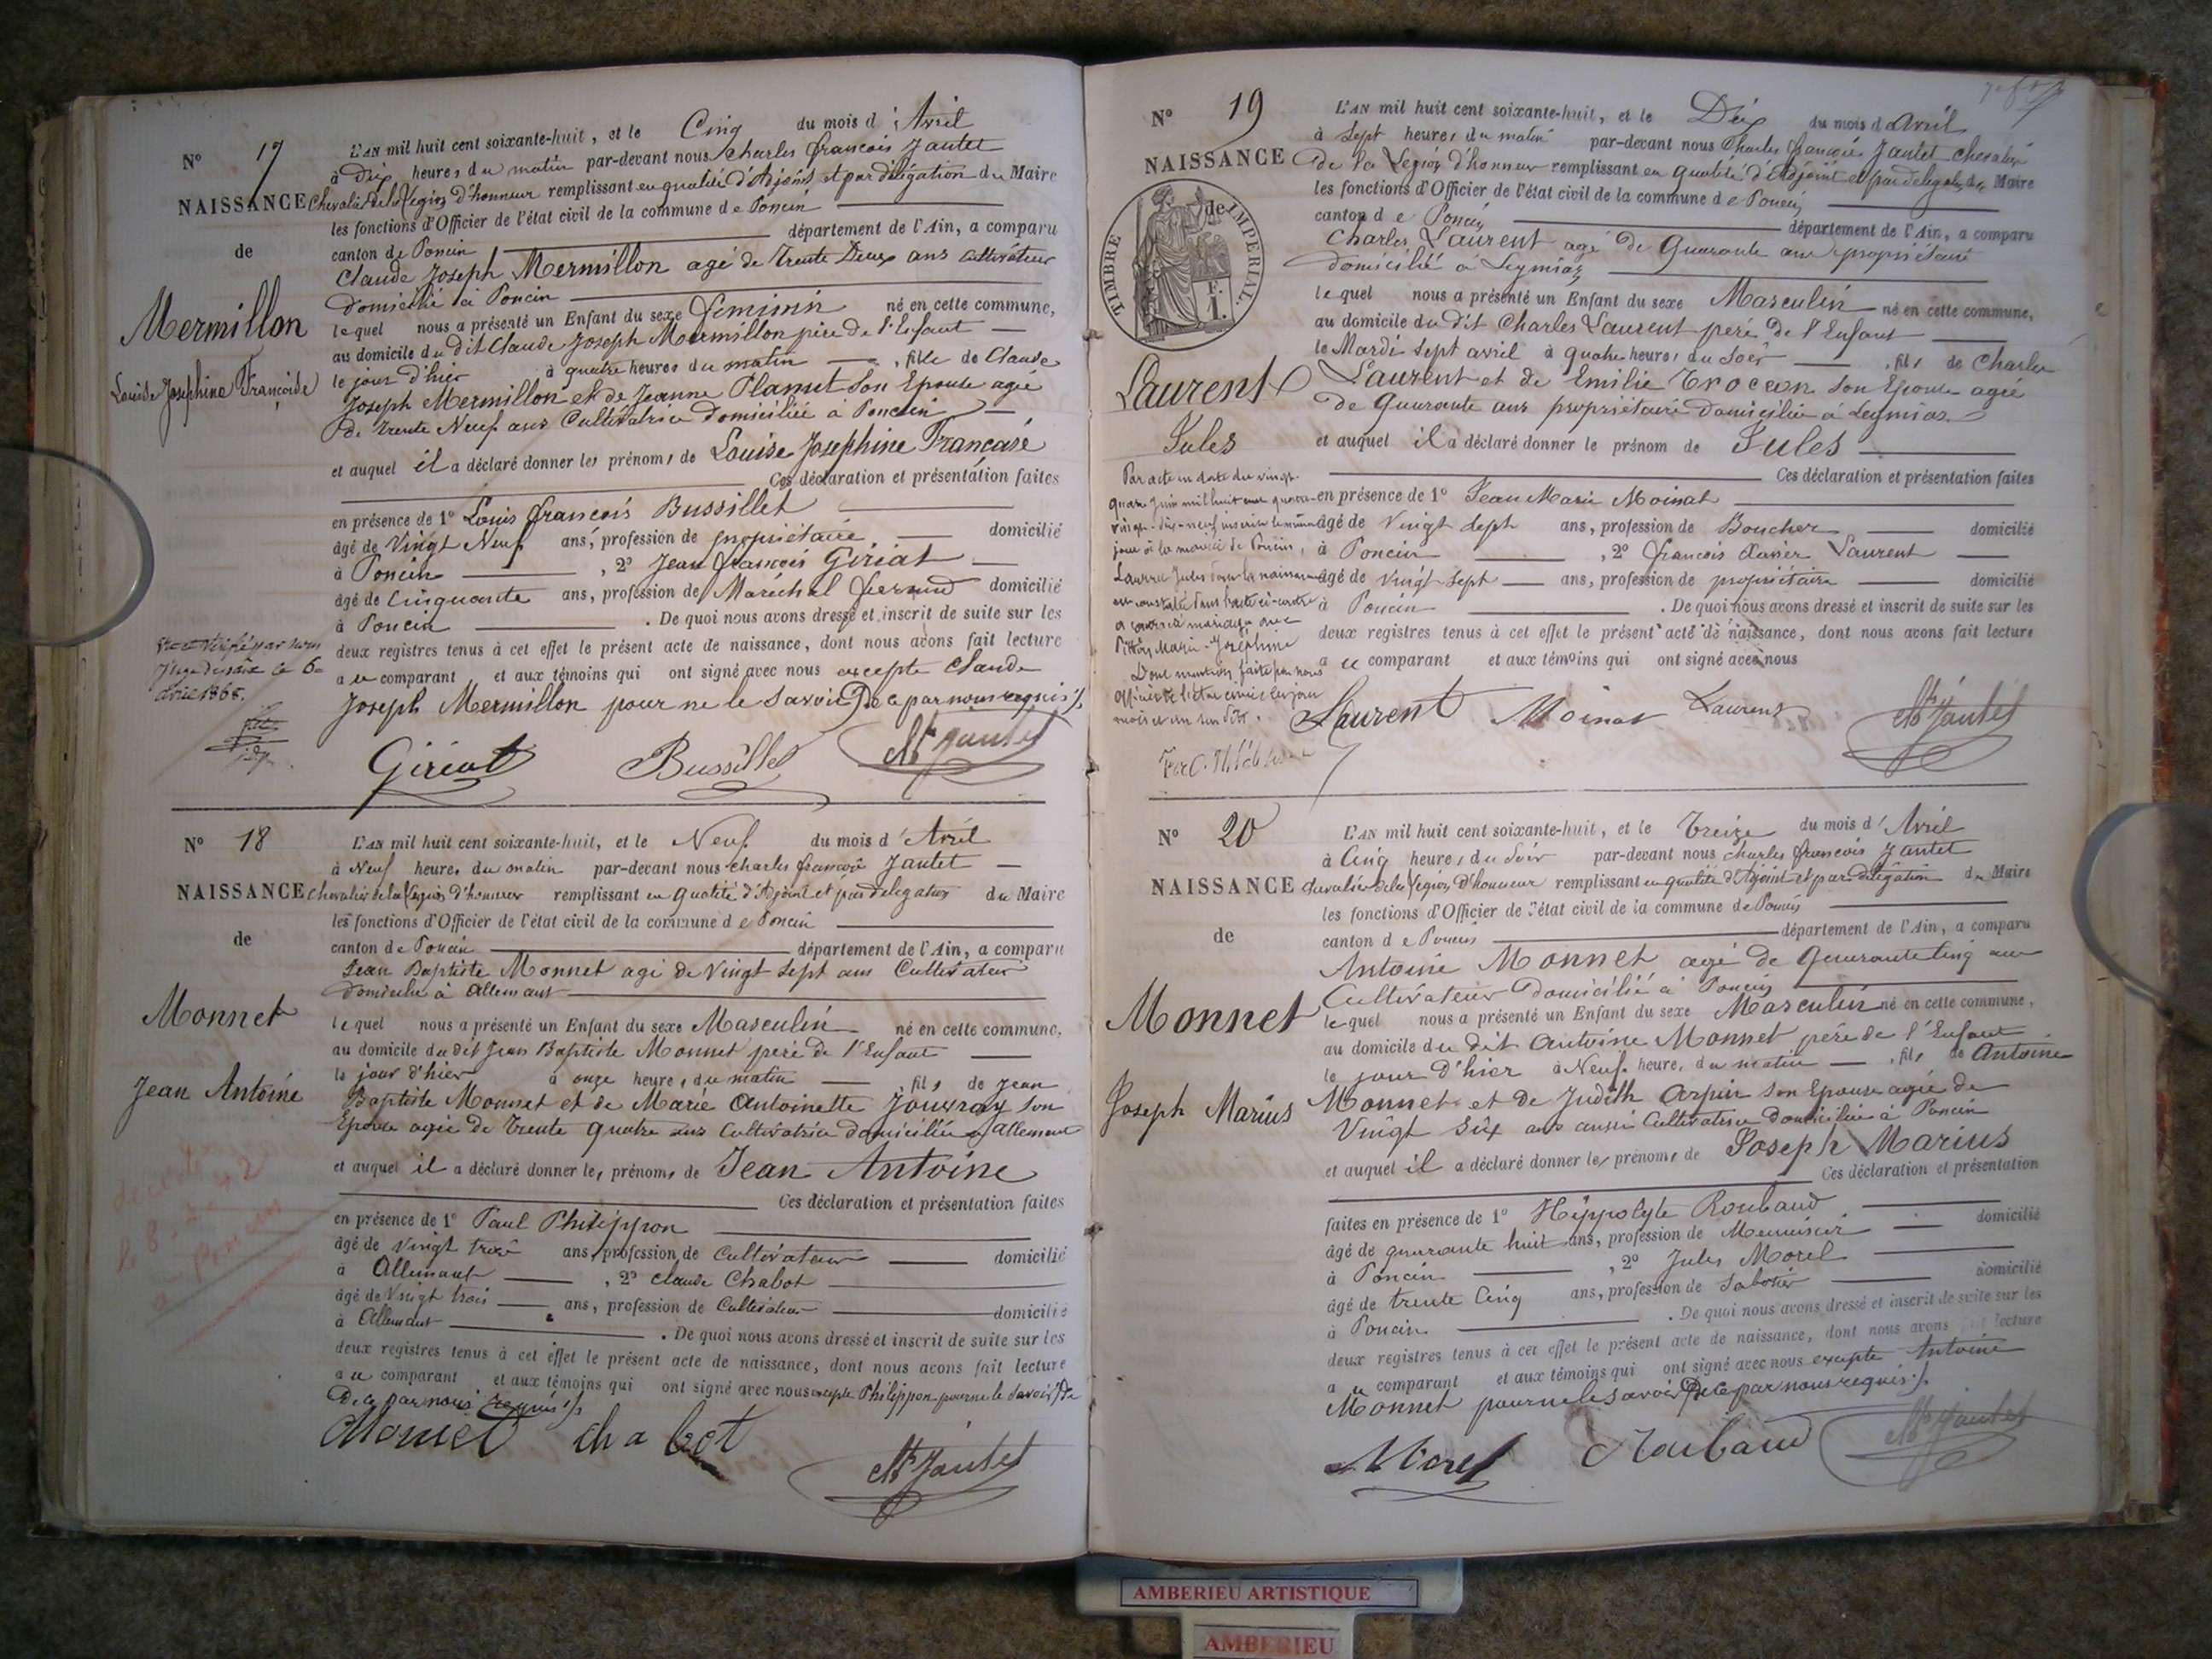 N° 17
NAISSANCE
de
Mermillon
Louise Josephine Françoise
L'AN mil huit cent soixante-huit, et le Cinq du mois d' Avril
à Dix heures du matin par-devant nous Charles françois Jantet
Chevalier de la Légion d'honneur remplissant en qualité d'Adjoint et par délégation du Maire
les fonctions d'Officier de l'état civil de la commune de Poncin
canton de Poncin département de l'Ain, a comparu
Claude Joseph Mermillon agé de Trente Deux ans cultivateur
domicilié à Poncin
lequel nous a présenté un Enfant du sexe féminin né en cette commune,
au domicile du dit Claude Joseph Mermillon père de l'Enfant
le jour d'hier à quatre heures du matin, fille de Claude
Joseph Mermillon et de Jeanne Plamut son Epouse agée
de trente Neuf ans Cultivatrice domiciliée à Poncin
et auquel il a déclaré donner les prénoms de Louise Josephine Francaise
Ces déclaration et présentation faites
en présence de 1° Louis françois Bussillet
âgé de Vingt Neuf ans, profession de propriétaire domicilié
à Poncin, 2° Jean françois Giriat
âgé de Cinquante ans, profession de Maréchal ferrand domicilié
à Poncin. De quoi nous avons dressé et inscrit de suite sur les
deux registres tenus à cet effet le présent acte de naissance, dont nous avons fait lecture
a ce comparant et aux témoins qui ont signé avec nous excepté Claude
Joseph Mermillon pour ne le savoir De ce par nous requis
juge de paix le 6
avril 1868.
Giriat Bussillet Ch Jantet
N° 18
NAISSANCE
de
Monnet
Jean Antoine
L'AN mil huit cent soixante-huit, et le Neuf du mois d' Avril
à Neuf heures du matin par-devant nous Charles françois Jantet
Chevalier de la Légion d'honneur remplissant en qualité d'Adjoint et par délégation du Maire
les fonctions d'Officier de l'état civil de la commune de Poncin
canton de Poncin département de l'Ain, a comparu
Jean Baptiste Monnet agé de Vingt Sept ans Cultivateur
domicilié à Allemant
lequel nous a présenté un Enfant du sexe Masculin né en cette commune,
au domicile du dit Jean Baptiste Monnet père de l'Enfant
le jour d'hier à onze heures du matin, fils de Jean
Baptiste Monnet et de Marie Antoinette Jouvray son
Epouse agée de Trente quatre ans Cultivatrice domiciliée à Allemant
et auquel il a déclaré donner les prénoms de Jean Antoine
Ces déclaration et présentation faites
en présence de 1° Paul Philippon
âgé de Vingt trois ans, profession de Cultivateur domicilié
à Allemant, 2° Claude Chabot
âgé de Vingt trois ans, profession de Cultivateur domicilié
à Allemant. De quoi nous avons dressé et inscrit de suite sur les
deux registres tenus à cet effet le présent acte de naissance, dont nous avons fait lecture
a ce comparant et aux témoins qui ont signé avec nous excepté Philippon pour ne le savoir De
De ce par nous requis
Monnet Chabot Ch Jantet
N° 19
NAISSANCE
de
TIMBRE IMPERIAL.
Laurent
Jules
L'AN mil huit cent soixante-huit, et le Dix du mois d'Avril
à Sept heures du matin par-devant nous Charles françois Jantet chevalier
de la Légion d'honneur remplissant en qualité d'Adjoint et par délégation du Maire
les fonctions d'Officier de l'état civil de la commune de Poncin
canton de Poncin département de l'Ain, a comparu
Charles Laurent agé de Quarante ans propriétaire
domicilié à Leymiaz
lequel nous a présenté un Enfant du sexe Masculin né en cette commune,
au domicile du dit Charles Laurent père de l'Enfant
le Mardi Sept avril à quatre heures du Soir, fils de Charles
Laurent et de Emilie Trocon son Epouse agée
de Quarante ans propriétaire domiciliée à Leymiaz
et auquel il a déclaré donner le prénom de Jules
Ces déclaration et présentation faites
en présence de 1° Jean Marie Moinat
âgé de Vingt Sept ans, profession de Boucher domicilié
à Poncin, 2° françois Xavier Laurent
âgé de Vingt Sept ans, profession de propriétaire domicilié
à Poncin. De quoi nous avons dressé et inscrit de suite sur les
deux registres tenus à cet effet le présent acte de naissance, dont nous avons fait lecture
a ce comparant et aux témoins qui ont signé avec nous
Par acte en date du vingt-
quatre Juin mil huit cent quatre
vingt-dix-neuf inscrit le même
jour à la mairie de Poncin,
Laurent Jules dont la naissance
est constatée dans l'acte ci-contre
a contracté mariage avec
Pittion Marie-Josephine
Dont mention faite par nous
Officier de l'état civil les jour
mois et an sus dits.
Laurent Moinat Laurent Ch Jantet
N° 20
NAISSANCE
de
Monnet
Joseph Marius
L'AN mil huit cent soixante-huit, et le Treize du mois d' Avril
à Cinq heures du Soir par-devant nous Charles françois Jantet
Chevalier de la Légion d'honneur remplissant en qualité d'Adjoint et par délégation du Maire
les fonctions d'Officier de l'état civil de la commune de Poncin
canton de Poncin département de l'Ain, a comparu
Antoine Monnet agé de Quarante Cinq ans
Cultivateur domicilié à Poncin
lequel nous a présenté un Enfant du sexe Masculin né en cette commune,
au domicile du dit Antoine Monnet père de l'Enfant
le jour d'hier à Neuf heures du matin, fils de Antoine
Monnet et de Judith Arpin son Epouse agée de
Vingt Six ans aussi Cultivatrice domiciliée à Poncin
et auquel il a déclaré donner les prénoms de Joseph Marius
Ces déclaration et présentation
faites en présence de 1° Hippolyte Roubaud
âgé de quarante huit ans, profession de Menuisier domicilié
à Poncin, 2° Jules Morel
âgé de trente Cinq ans, profession de Sabotier domicilié
à Poncin. De quoi nous avons dressé et inscrit de suite sur les
deux registres tenus à cet effet le présent acte de naissance, dont nous avons fait lecture
a ce comparant et aux témoins qui ont signé avec nous excepté Antoine
Monnet pour ne le savoir De ce par nous requis
Morel Roubaud Ch Jantet
AMBERIEU ARTISTIQUE
AMBERIEU